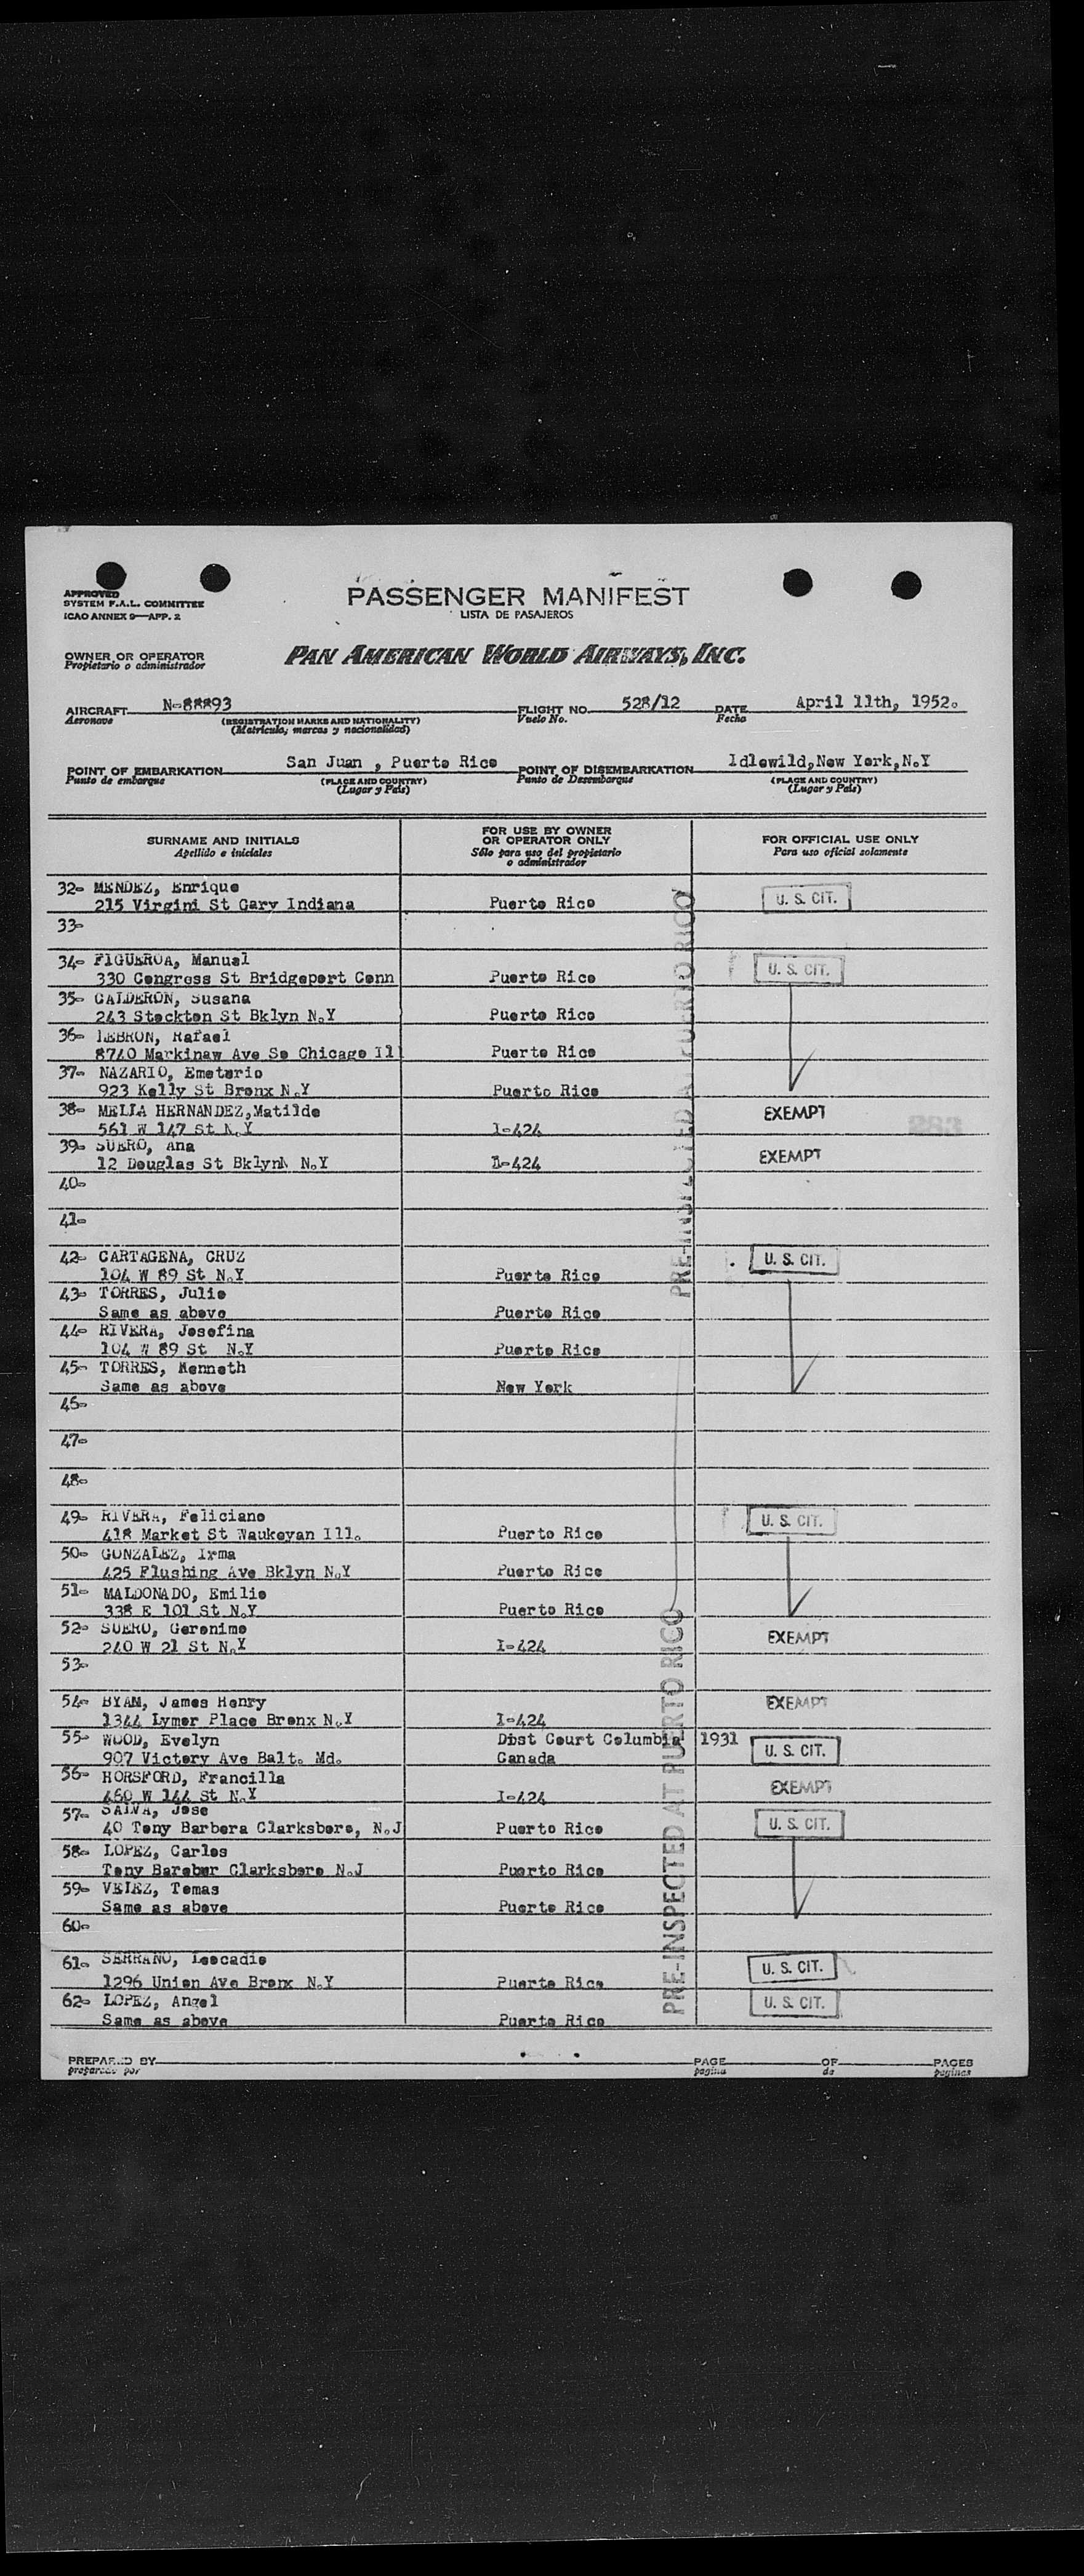 APPROVED
SYSTEM F.A.L. COMMITTEE
ICAO ANNEX 9—APP. 2
PASSENGER MANIFEST
LISTA DE PASAJEROS
OWNER OR OPERATOR
Propietario o administrador
PAN AMERICAN WORLD AIRWAYS, INC.
AIRCRAFT N-88893 FLIGHT NO. 528/12 DATE April 11th, 1952.
Aeronave (REGISTRATION MARKS AND NATIONALITY) Vuelo No. Fecha
(Matrícula, marcas y nacionalidad)
POINT OF EMBARKATION San Juan , Puerto Rico POINT OF DISEMBARKATION Idlewild,New York,N.Y
Punto de embarque (PLACE AND COUNTRY) Punto de Desembarque (PLACE AND COUNTRY)
(Lugar y País) (Lugar y País)
SURNAME AND INITIALS
Apellido e iniciales
FOR USE BY OWNER
OR OPERATOR ONLY
Sólo para uso del propietario
o administrador
FOR OFFICIAL USE ONLY
Para uso oficial solamente
32- MENDEZ, Enrique
215 Virgini St Gary Indiana Puerto Rico U. S. CIT.
33-
34- FIGUEROA, Manual
330 Congress St Bridgeport Conn Puerto Rico U. S. CIT.
35- CALDERON, Susana
243 Stockton St Bklyn N.Y Puerto Rico
36- LEBRON, Rafael
8740 Markinaw Ave So Chicago Ill Puerto Rico
37- NAZARIO, Emeterio
923 Kelly St Bronx N.Y Puerto Rico
38- MELIA HERNANDEZ,Matilde EXEMPT
561 W 147 St N.Y I-424
39- SUERO, Ana EXEMPT
12 Douglas St Bklyn N.Y I-424
40-
41-
42- CARTAGENA, CRUZ U. S. CIT.
104 W 89 St N.Y Puerto Rico
43- TORRES, Julio
Same as above Puerto Rico
44- RIVERA, Josefina
104 W 89 St N.Y Puerto Rico
45- TORRES, Kenneth
Same as above New York
46-
47-
48-
49- RIVERA, Feliciano U. S. CIT.
418 Market St Waukeyan Ill. Puerto Rico
50- GONZALEZ, Irma
425 Flushing Ave Bklyn N.Y Puerto Rico
51- MALDONADO, Emilio
338 E 101 St N.Y Puerto Rico
52- SUERO, Geronimo EXEMPT
240 W 21 St N.Y I-424
53-
54- BYAM, James Henry EXEMPT
1344 Lymer Place Bronx N.Y I-424
55- WOOD, Evelyn Dist Court Columbia 1931
907 Victory Ave Balt. Md. Canada U. S. CIT.
56- HORSFORD, Francilla EXEMPT
460 W 144 St N.Y I-424
57- SALVA, Jose U. S. CIT.
40 Tony Barbera Clarksboro, N.J Puerto Rico
58- LOPEZ, Carlos
Tony Bareber Clarksboro N.J Puerto Rico
59- VELEZ, Tomas
Same as above Puerto Rico
60-
61- SERRANO, Leocadio U. S. CIT.
1296 Union Ave Bronx N.Y Puerto Rico
62- LOPEZ, Angel U. S. CIT.
Same as above Puerto Rico
PRE-INSPECTED AT PUERTO RICO
PRE-INSPECTED AT PUERTO RICO
PREPARED BY PAGE OF PAGES
preparado por pagina de paginas